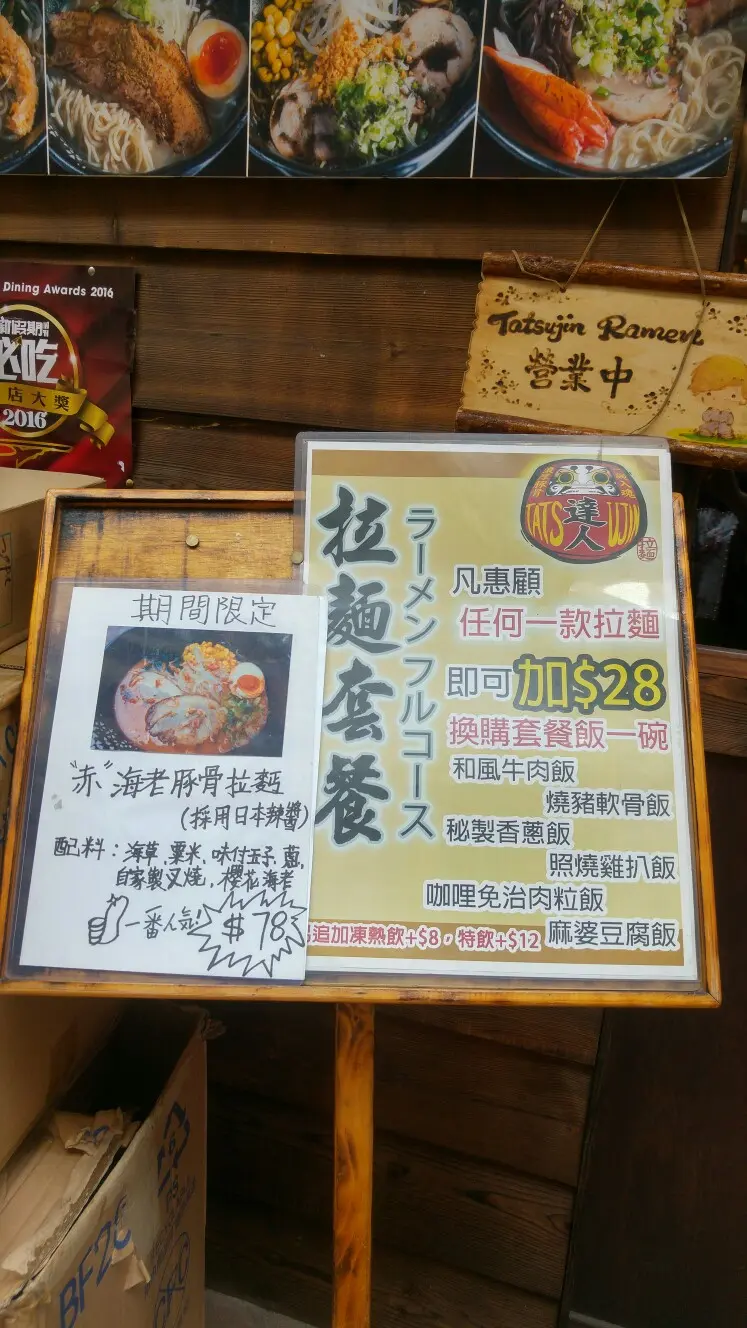 Dining Awards 2016
新假期
必吃
店大獎
2016
Tatsujin Ramen
營業中
期間限定
"赤"海老豚骨拉麵
(採用日本辣醬)
配料：海草,粟米,味付玉子,蔥,
自家製叉燒,櫻花海老
一番人気!
$78
拉麵套餐
ラーメンフルコース
TATSUJIN
達人
拉麵
凡惠顧
任何一款拉麵
即可加$28
換購套餐飯一碗
和風牛肉飯
燒豬軟骨飯
秘製香蔥飯
照燒雞扒飯
咖哩免治肉粒飯
麻婆豆腐飯
追加凍熱飲+$8，特飲+$12
BF2C